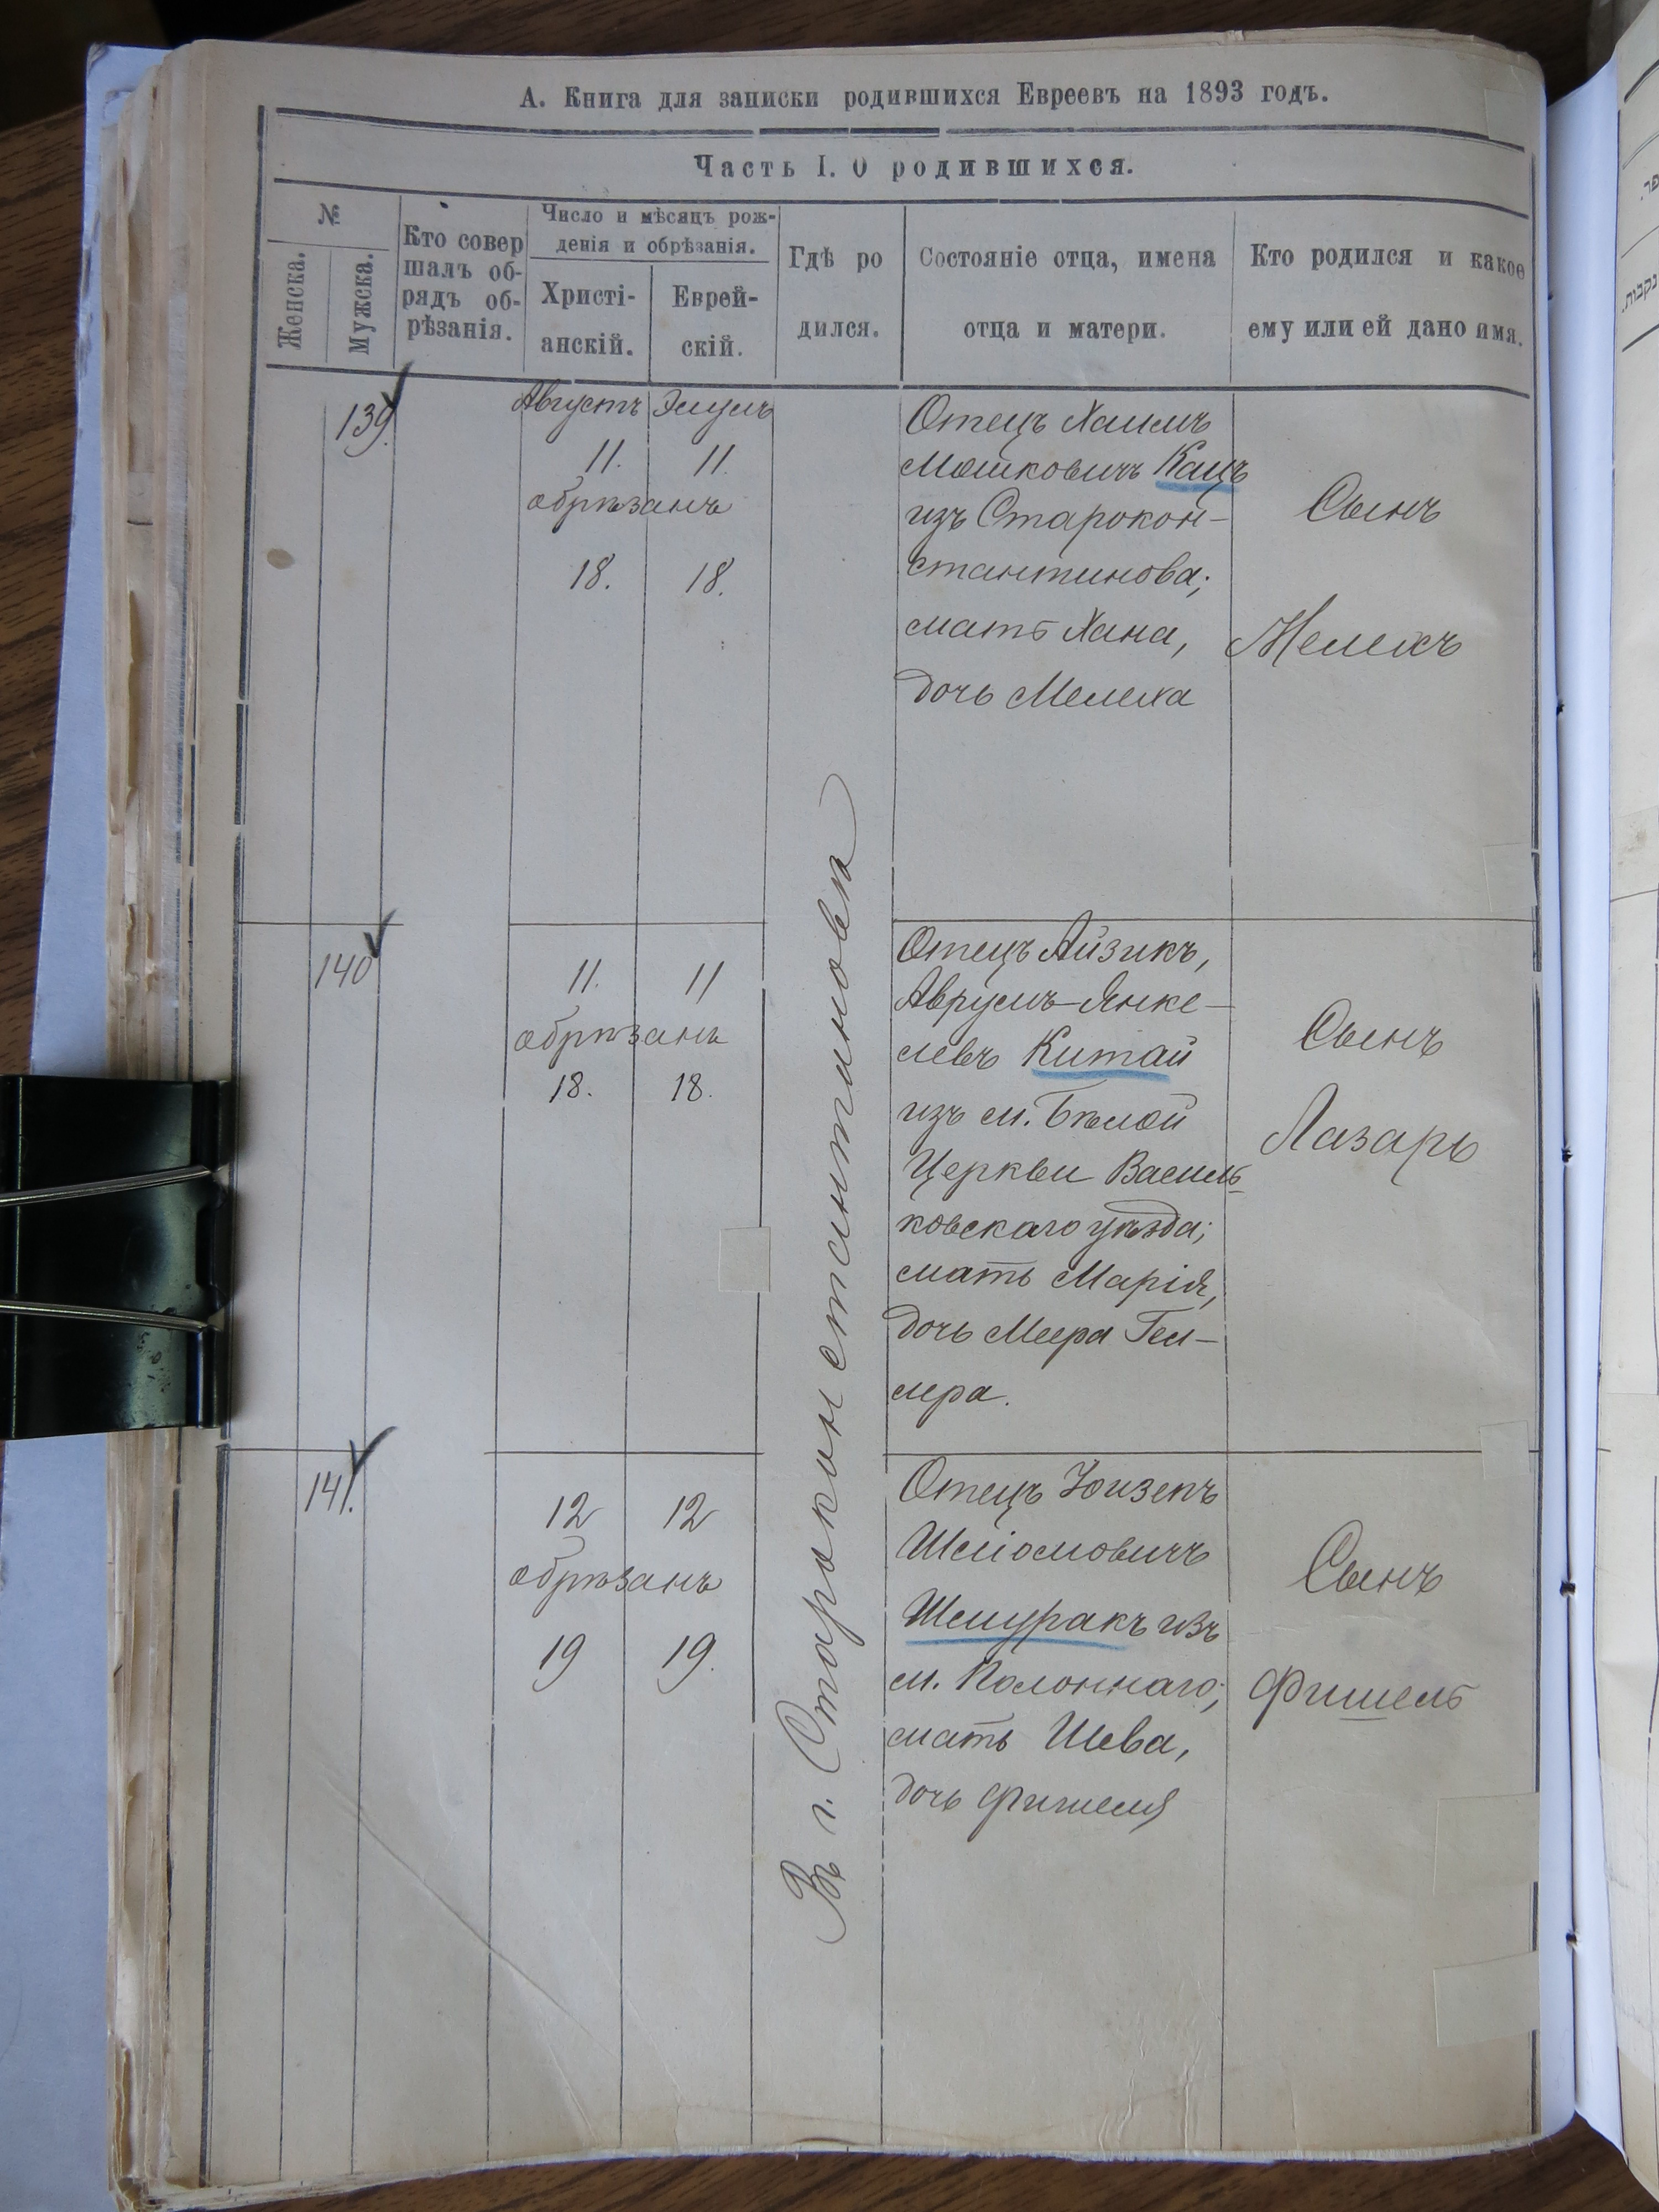 А. Книга для записки родившихся Евреевъ на 1893 годъ.
Часть I. О родившихся.
№
Женска.
Мужска.
Кто совер
шалъ об-
рядъ об-
рѣзанія.
Число и мѣсяцъ рож-
денія и обрѣзанія.
Христі-
анскій.
Еврей-
скій.
Гдѣ ро
дился.
Состояніе отца, имена
отца и матери.
Кто родился и какое
ему или ей дано имя.
139.
Августъ Элулъ
11. 11.
обрѣзанъ
18. 18.
Отецъ Хаимъ
Мошковичъ Кацъ
изъ Старокон-
стантинова;
мать Хана,
дочь Мелеха
Сынъ
Мелехъ
140
11. 11
обрѣзанъ
18. 18.
Отецъ Айзикъ,
Аврумъ-Янке-
левъ Китай
изъ м. Бѣлой
Церкви Василь-
ковскаго уѣзда;
мать Марія,
дочь Меера Гел-
лера.
Сынъ
Лазарь
141.
12 12
обрѣзанъ
19 19.
Отецъ Юизепъ
Шліомовичъ
Шемуракъ изъ
м. Полоннаго;
мать Шева,
дочь Фишеля
Сынъ
Фишель
Въ г. Староконстантиновѣ
פר.
נקבות.